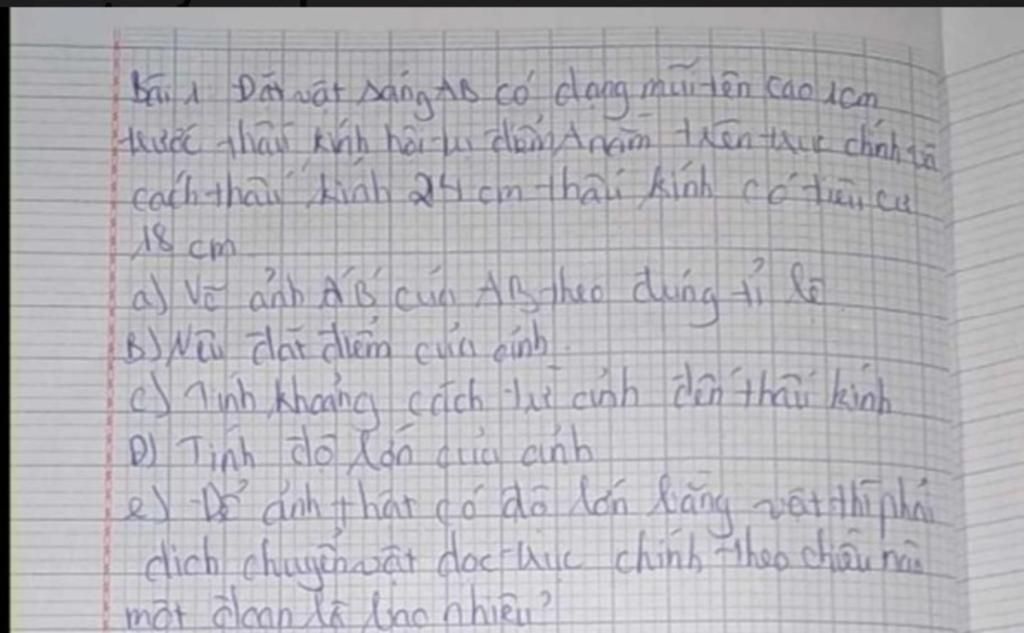 Bài 1 Đặt vật sáng AB có dạng mũi tên cao 1cm
trước thấu kính hội tụ điểm A nằm trên trục chính và
cách thấu kính 24 cm thấu kính có tiêu cự
18 cm
a) Vẽ ảnh A'B' của AB theo đúng tỉ lệ
B) Nêu đặc điểm của ảnh.
c) Tính khoảng cách từ ảnh đến thấu kính
D) Tính độ lớn của ảnh
e) Để ảnh thật có độ lớn bằng vật thì phải
dịch chuyển vật dọc trục chính theo chiều nào
một đoạn là bao nhiêu?